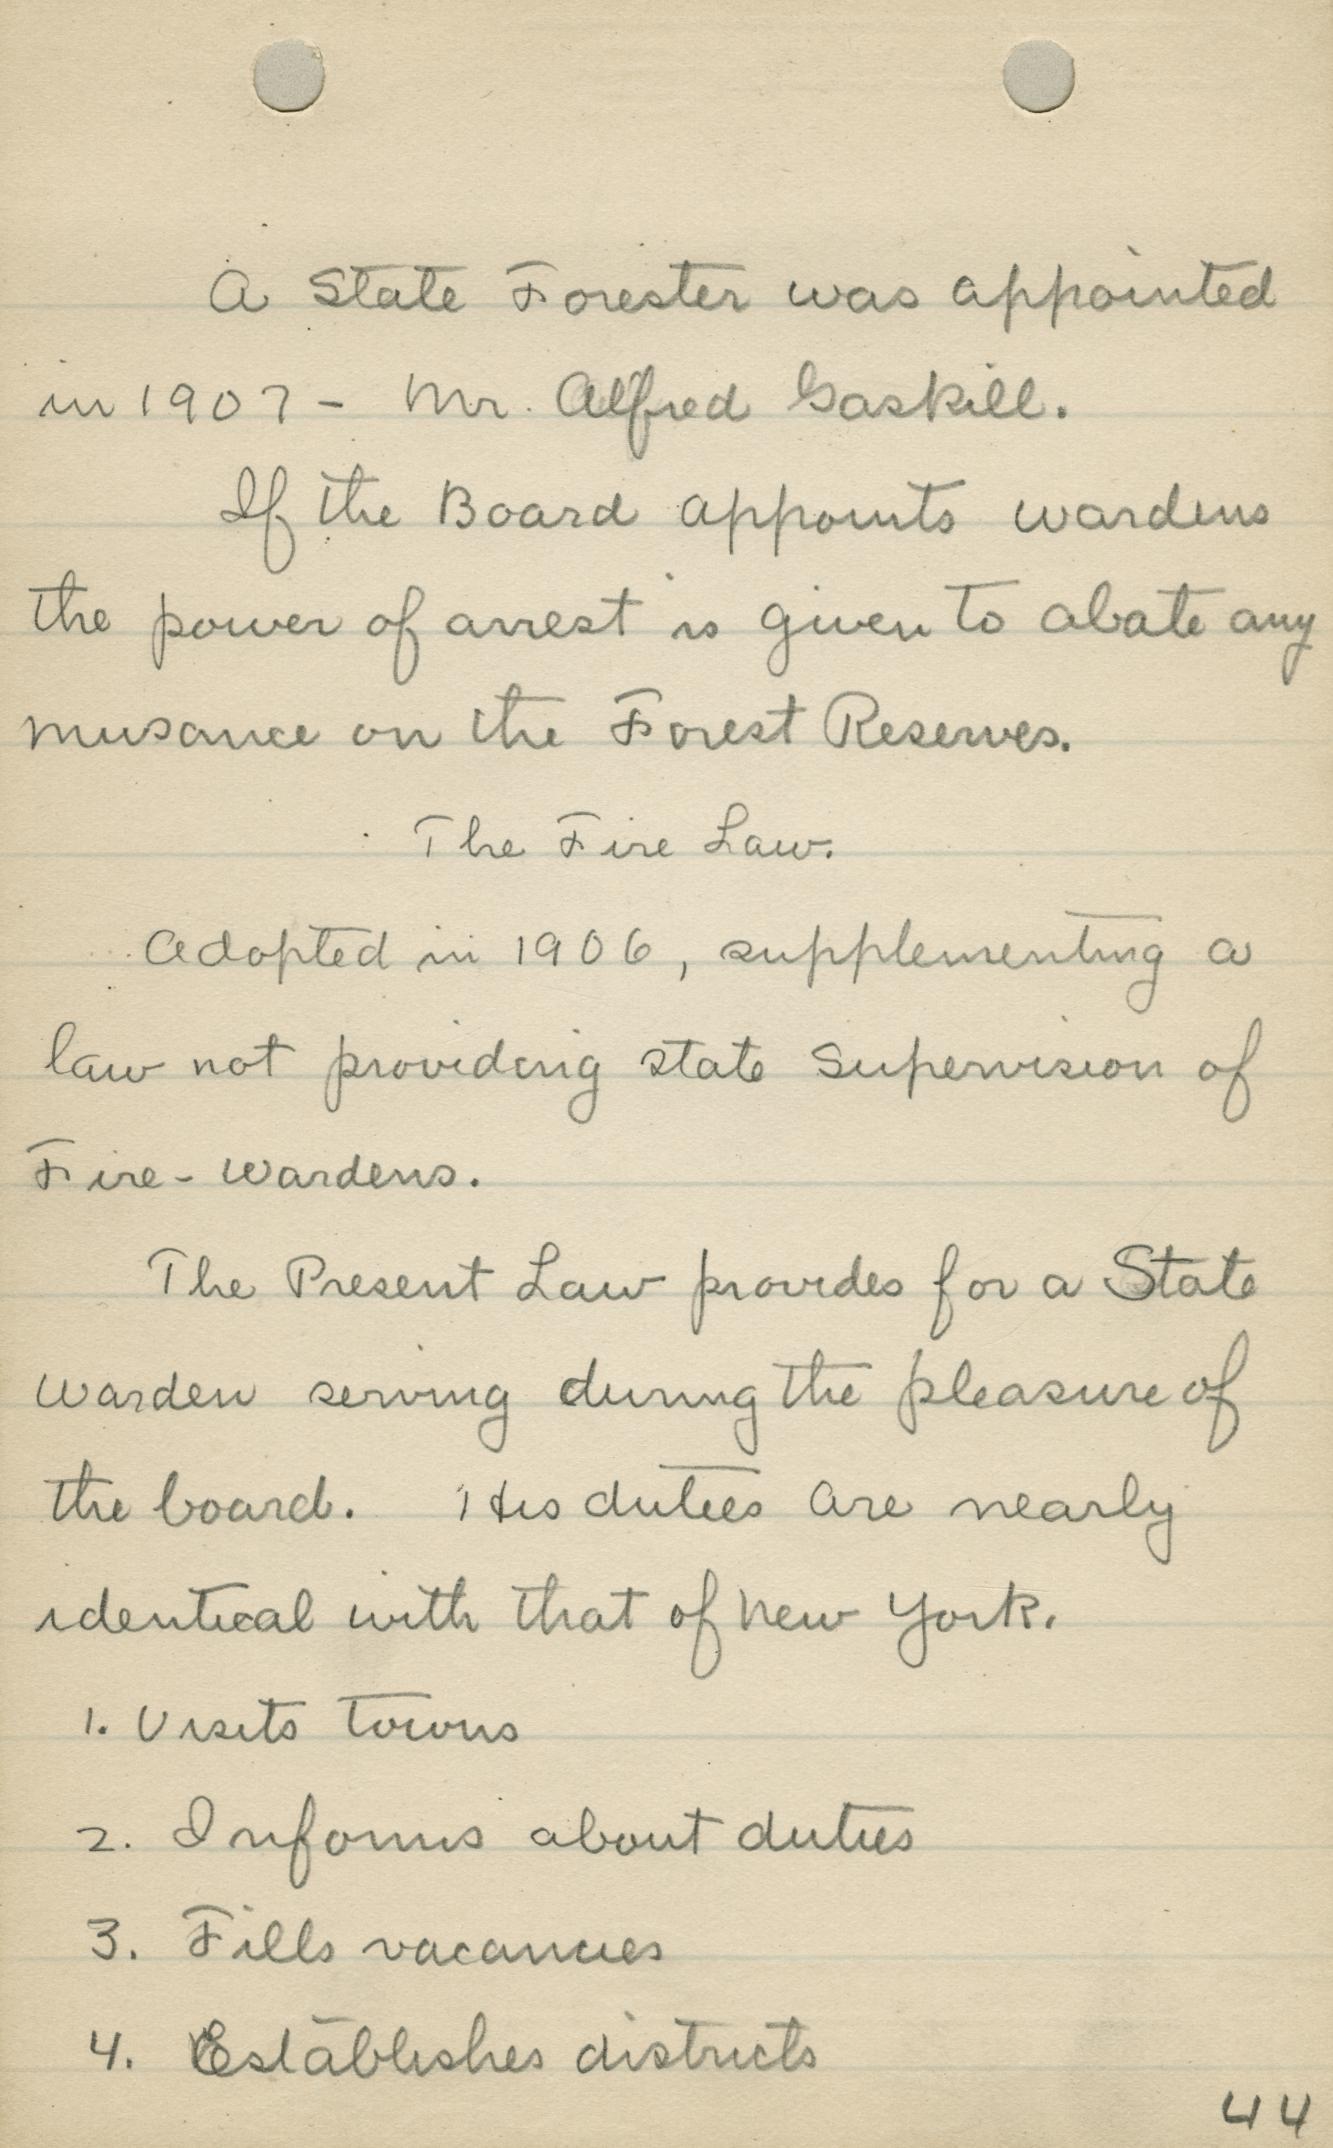 A State Forester was appointed
in 1907 - Mr. Alfred Gaskill.
If the Board appoints wardens
the power of arrest is given to abate any
nuisance on the Forest Reserves.
The Fire Law.
Adopted in 1906, supplementing a
law not providing state supervision of
Fire-Wardens.
The Present Law provides for a State
Warden serving during the pleasure of
the board. His duties are nearly
identical with that of New York.
1. Visits towns
2. Informs about duties
3. Fills vacancies
4. Establishes districts
44